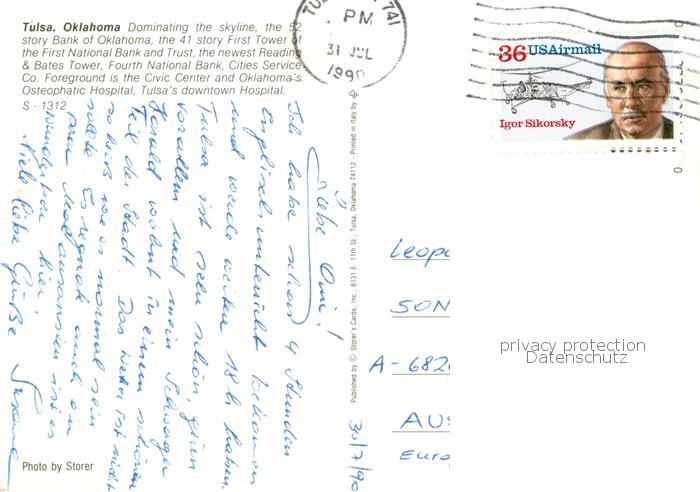 Tulsa, Oklahoma Dominating the skyline, the 52
story Bank of Oklahoma, the 41 story First Tower of
the First National Bank and Trust, the newest Reading
& Bates Tower, Fourth National Bank, Cities Service
Co. Foreground is the Civic Center and Oklahoma's
Osteophatic Hospital, Tulsa's downtown Hospital.
S - 1312
TUL 741
PM
31 JUL
1990
36 USAirmail
Igor Sikorsky
Liebe Omi!
Ich habe schon 4 Stunden
Englischunterricht bekommen
und werde weitere 18 h haben.
Tulsa ist sehr schön, grün
vorallem und mein Schwager
Harald wohnt in einem schönen
Teil der Stadt. Das Wetter ist nicht
so heiß wie es normal sein
sollte. Es regnet auch ein
paar Mal ansonsten ist es
wunderbar hier.
Viele liebe Grüße
Published by © Storer's Cards, Inc., 8131 E. 11th St., Tulsa, Oklahoma 74112 - Printed in Italy by
Leopo
SON
A-682
AUS
Euro
30/7/90
privacy protection
Datenschutz
Photo by Storer